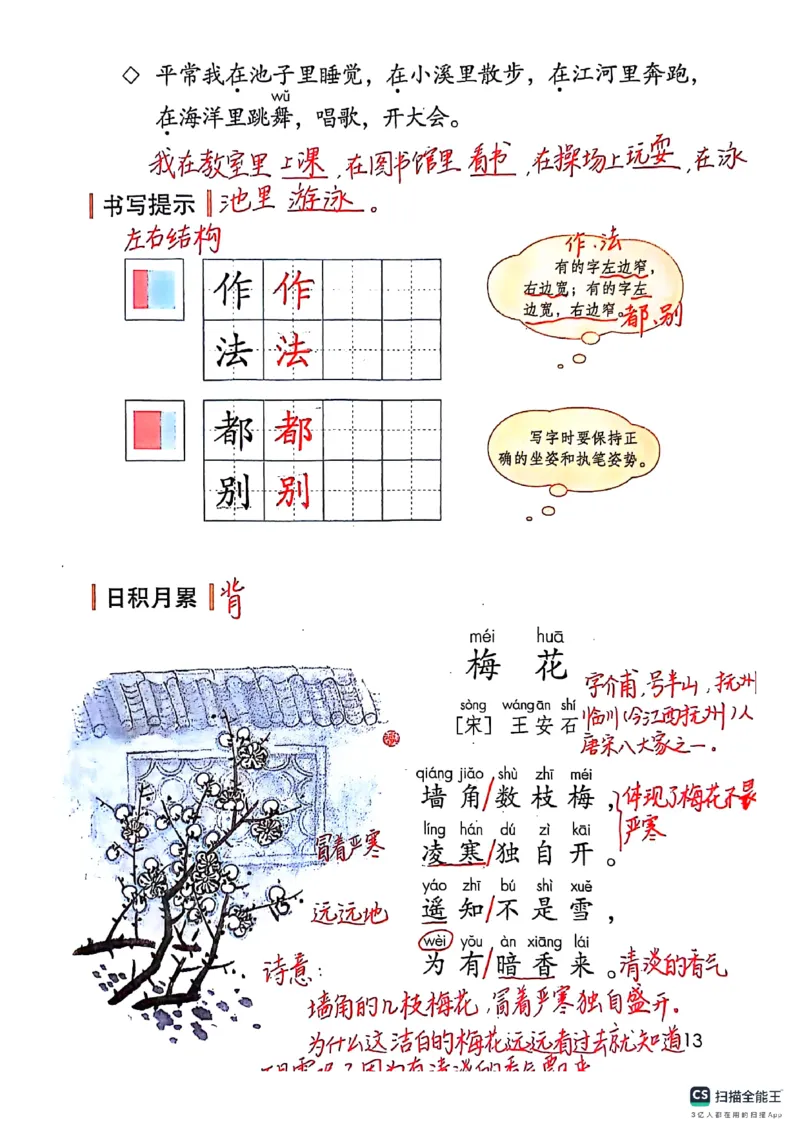 ◇ 平常我在池子里睡觉，在小溪里散步，在江河里奔跑，
wǔ
在海洋里跳舞，唱歌，开大会。
我在教室里上课，在图书馆里看书，在操场上玩耍，在泳
书写提示 池里 游泳。
左右结构
作 作
法 法
作、法
有的字左边窄，
右边宽；有的字左
边宽，右边窄。都、别
都 都
别 别
写字时要保持正
确的坐姿和执笔姿势。
日积月累 背
méi huā
梅 花
sòng wáng ān shí
[宋] 王安石
字介甫，号半山，抚州
临川（今江西抚州）人
唐宋八大家之一。
qiáng jiǎo shù zhī méi
墙角/数枝梅，
体现了梅花不畏
严寒
líng hán dú zì kāi
凌寒/独自开。
冒着严寒
yáo zhī bú shì xuě
遥知/不是雪，
远远地
wèi yǒu àn xiāng lái
为有/暗香来。清淡的香气
诗意：
墙角的几枝梅花，冒着严寒独自盛开。
为什么这洁白的梅花远远看过去就知道
13
CS 扫描全能王
3亿人都在用的扫描App